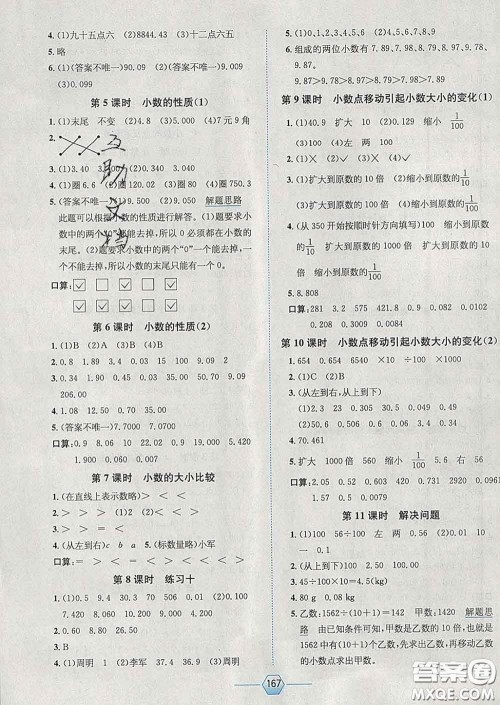 4. (1)九十五点六 (2)8844.43 (3)十二点六五
5. 略
6. (1)(答案不唯一)90.09 (2)(答案不唯一)9.009
(3)0.099
第5课时 小数的性质(1)
1. (1)末尾 不变 (2)4.8 (3)5 (4)7元9角
2.
3. (1)3.40 (2)5.030 (3)1.500
4. (1)圈6.6 (2)圈7.0 (3)圈80 (4)圈750.3
5. (答案不唯一)80.050 9.050 解题思路
此题可以根据小数的性质进行解答。(1)题要求小
数中的两个“0”都能去掉,所以0必须都在小数的
末尾。(2)题要求小数中的两个“0”一个能去掉,一
个不能去掉,所以小数的末尾只能有一个0。
口算:
第6课时 小数的性质(2)
1. (1)B (2)A (3)B (4)C
2. 0.8 1.39 15.4 30.3 70.05 0.9
3. 1.80 40.00 15.00 0.40 8.15 9.09
206.00
4. 7.200 0.850 36.000 1.020
5. (答案不唯一)(1)0.080 (2)3.300 (3)50.00
口算: 0.9 8.09 10 0.22 0.92 0.19
0.01 0.02 1.90 0.007
第7课时 小数的大小比较
1. (在直线上表示数略) > < <
2. > < < > > <
3. > < > =
4. (从左到右)c b a 5. (标数量略)小军
口算: < > < > > > < > > >
第8课时 练习十
1. 7.420 0.030 18.000 6.000 0.100
0.090
2. (1)C (2)B (3)B
3. (1)周明 1 (2)李军 37.0 36.9 (3)周明
7.89。
6. 组成的两位小数有7.89、7.98、8.79、8.97、9.78、
9.87。
9.87>9.78>8.97>8.79>7.98>7.89
第9课时 小数点移动引起小数大小的变化(1)
1. (1)0.69 扩大 10 (2)0.129 缩小 1/100
(3)100 (4)左 两
2. (1)× (2)× (3)✓
3. (1)扩大到原数的100倍 (2)缩小到原数的1/100
(3)缩小到原数的1/10 (4)扩大到原数的10倍
4. (1)扩大到原数的1000倍 (2)缩小到原数的1/100
(3)(从350开始按顺时针方向填写)缩小到原数
的1/10 缩小到原数的1/10 缩小到原数的1/10
5. 8.808
口算: 281 0.378 500 421.8 0.9 0.082
0.001 1000 0.63 0.029
第10课时 小数点移动引起小数大小的变化(2)
1. 654 0.654 6540 ×10 ÷100 ÷1000
2. (1)C (2)B
3. (从左到右,从上到下)
(1)2.3 23 230 (2)0.51 0.051
4. 70.461
5. 扩大 1000倍 缩小 1/100 扩大 100倍
口算: 320 0.8 5 1.07 100 40.8 2.6
0.009 2.36 0.045
第11课时 解决问题
1. (1)100 56÷100 左 两 0.56 (2)0.56
2. (从上到下)130 0.013 10
3. 45÷100×10=4.5(kg)
4. 80 g 0.08 kg
5. 乙数:1562÷(10+1)=142 甲数:1420 解题思
路 由已知条件可知,甲数是乙数的10倍,也就是
1562是乙数的(10+1)倍,先求出乙数,再移动乙数
的小数点求出甲数。
167
互助文档
答案圈
MXQE.COM